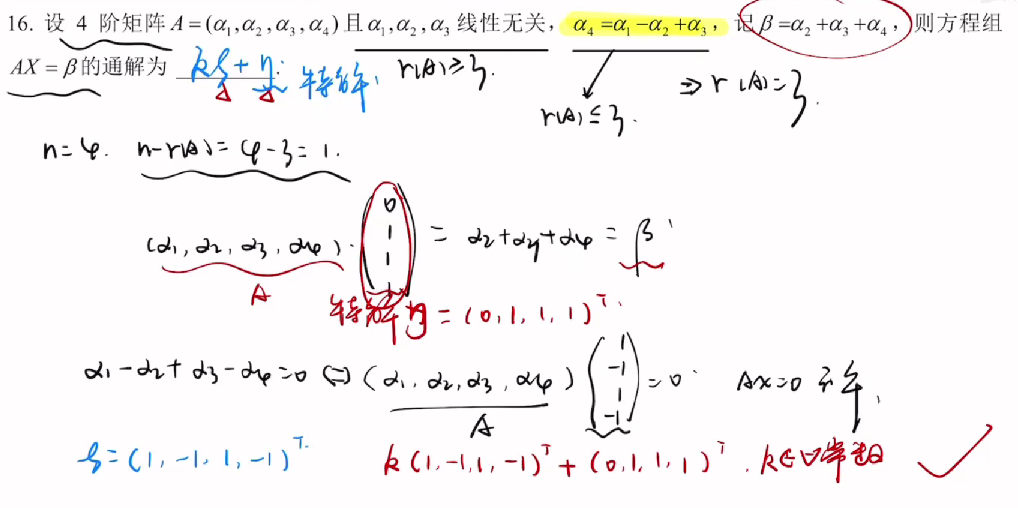 16. 设 4 阶矩阵 A=(α₁,α₂,α₃,α₄)且α₁,α₂,α₃ 线性无关，α₄=α₁−α₂+α₃，记β=α₂+α₃+α₄，则方程组
AX=β的通解为 kξ+η. 特解. r(A)≥3. r(A)≤3. ⇒ r(A)=3.
n=4. n-r(A)=4-3=1.
(α₁,α₂,α₃,α₄)·(0 1 1 1) = α₂+α₃+α₄ = β
A
特解η=(0,1,1,1)ᵀ.
α₁-α₂+α₃-α₄=0 ⇔ (α₁,α₂,α₃,α₄)(1 -1 1 -1)=0 AX=0
A
ξ=(1,-1,1,-1)ᵀ. k(1,-1,1,-1)ᵀ+(0,1,1,1)ᵀ. k∈∀常数